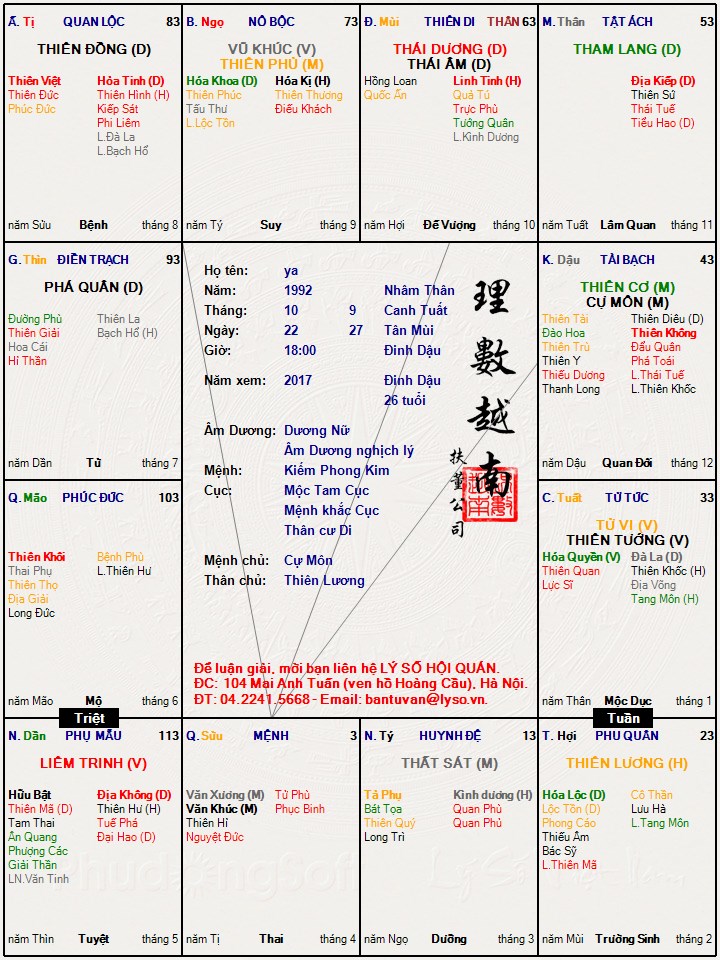 Ấ. Tị QUAN LỘC 83
THIÊN ĐỒNG (D)
Thiên Việt Hỏa Tinh (D)
Thiên Đức Thiên Hình (H)
Phúc Đức Kiếp Sát
Phi Liêm
L.Đà La
L.Bạch Hổ
năm Sửu Bệnh tháng 8
B. Ngọ NÔ BỘC 73
VŨ KHÚC (V)
THIÊN PHỦ (M)
Hóa Khoa (D) Hóa Kị (H)
Thiên Phúc Thiên Thương
Tấu Thư Điếu Khách
L.Lộc Tồn
năm Tý Suy tháng 9
Đ. Mùi THIÊN DI THÂN 63
THÁI DƯƠNG (D)
THÁI ÂM (D)
Hồng Loan Linh Tinh (H)
Quốc Ấn Quả Tú
Trực Phù
Tướng Quân
L.Kình Dương
năm Hợi Đế Vượng tháng 10
M. Thân TẬT ÁCH 53
THAM LANG (D)
Địa Kiếp (D)
Thiên Sứ
Thái Tuế
Tiểu Hao (D)
năm Tuất Lâm Quan tháng 11
G. Thìn ĐIỀN TRẠCH 93
PHÁ QUÂN (D)
Đường Phù Thiên La
Thiên Giải Bạch Hổ (H)
Hoa Cái
Hỉ Thần
năm Dần Tử tháng 7
Họ tên: ya
Năm: 1992 Nhâm Thân
Tháng: 10 9 Canh Tuất
Ngày: 22 27 Tân Mùi
Giờ: 18:00 Đinh Dậu
Năm xem: 2017 Đinh Dậu
26 tuổi
Âm Dương: Dương Nữ
Âm Dương nghịch lý
Mệnh: Kiếm Phong Kim
Cục: Mộc Tam Cục
Mệnh khắc Cục
Thân cư Di
Mệnh chủ: Cự Môn
Thân chủ: Thiên Lương
理數越南
扶董公司
Để luận giải, mời bạn liên hệ LÝ SỐ HỘI QUÁN.
ĐC: 104 Mai Anh Tuấn (ven hồ Hoàng Cầu), Hà Nội.
ĐT: 04.2241.5668 - Email: bantuvan@lyso.vn.
K. Dậu TÀI BẠCH 43
THIÊN CƠ (M)
CỰ MÔN (M)
Thiên Tài Thiên Diêu (D)
Đào Hoa Thiên Không
Thiên Trù Đẩu Quân
Thiên Y Phá Toái
Thiếu Dương L.Thái Tuế
Thanh Long L.Thiên Khốc
năm Dậu Quan Đới tháng 12
Q. Mão PHÚC ĐỨC 103
Thiên Khôi Bệnh Phù
Thai Phụ L.Thiên Hư
Thiên Thọ
Địa Giải
Long Đức
năm Mão Mộ tháng 6
C. Tuất TỬ TỨC 33
TỬ VI (V)
THIÊN TƯỚNG (V)
Hóa Quyền (V) Đà La (D)
Thiên Quan Thiên Khốc (H)
Lực Sĩ Địa Võng
Tang Môn (H)
năm Thân Mộc Dục tháng 1
Triệt
Tuần
N. Dần PHỤ MẪU 113
LIÊM TRINH (V)
Hữu Bật Địa Không (D)
Thiên Mã (D) Thiên Hư (H)
Tam Thai Tuế Phá
Ân Quang Đại Hao (D)
Phượng Các
Giải Thần
LN.Văn Tinh
năm Thìn Tuyệt tháng 5
Q. Sửu MỆNH 3
Văn Xương (M) Tử Phù
Văn Khúc (M) Phục Binh
Thiên Hỉ
Nguyệt Đức
năm Tị Thai tháng 4
N. Tý HUYNH ĐỆ 13
THẤT SÁT (M)
Tả Phụ Kình dương (H)
Bát Tọa Quan Phù
Thiên Quý Quan Phủ
Long Trì
năm Ngọ Dưỡng tháng 3
T. Hợi PHU QUÂN 23
THIÊN LƯƠNG (H)
Hóa Lộc (D) Cô Thần
Lộc Tồn (D) Lưu Hà
Phong Cáo L.Tang Môn
Thiếu Âm
Bác Sỹ
L.Thiên Mã
năm Mùi Trường Sinh tháng 2